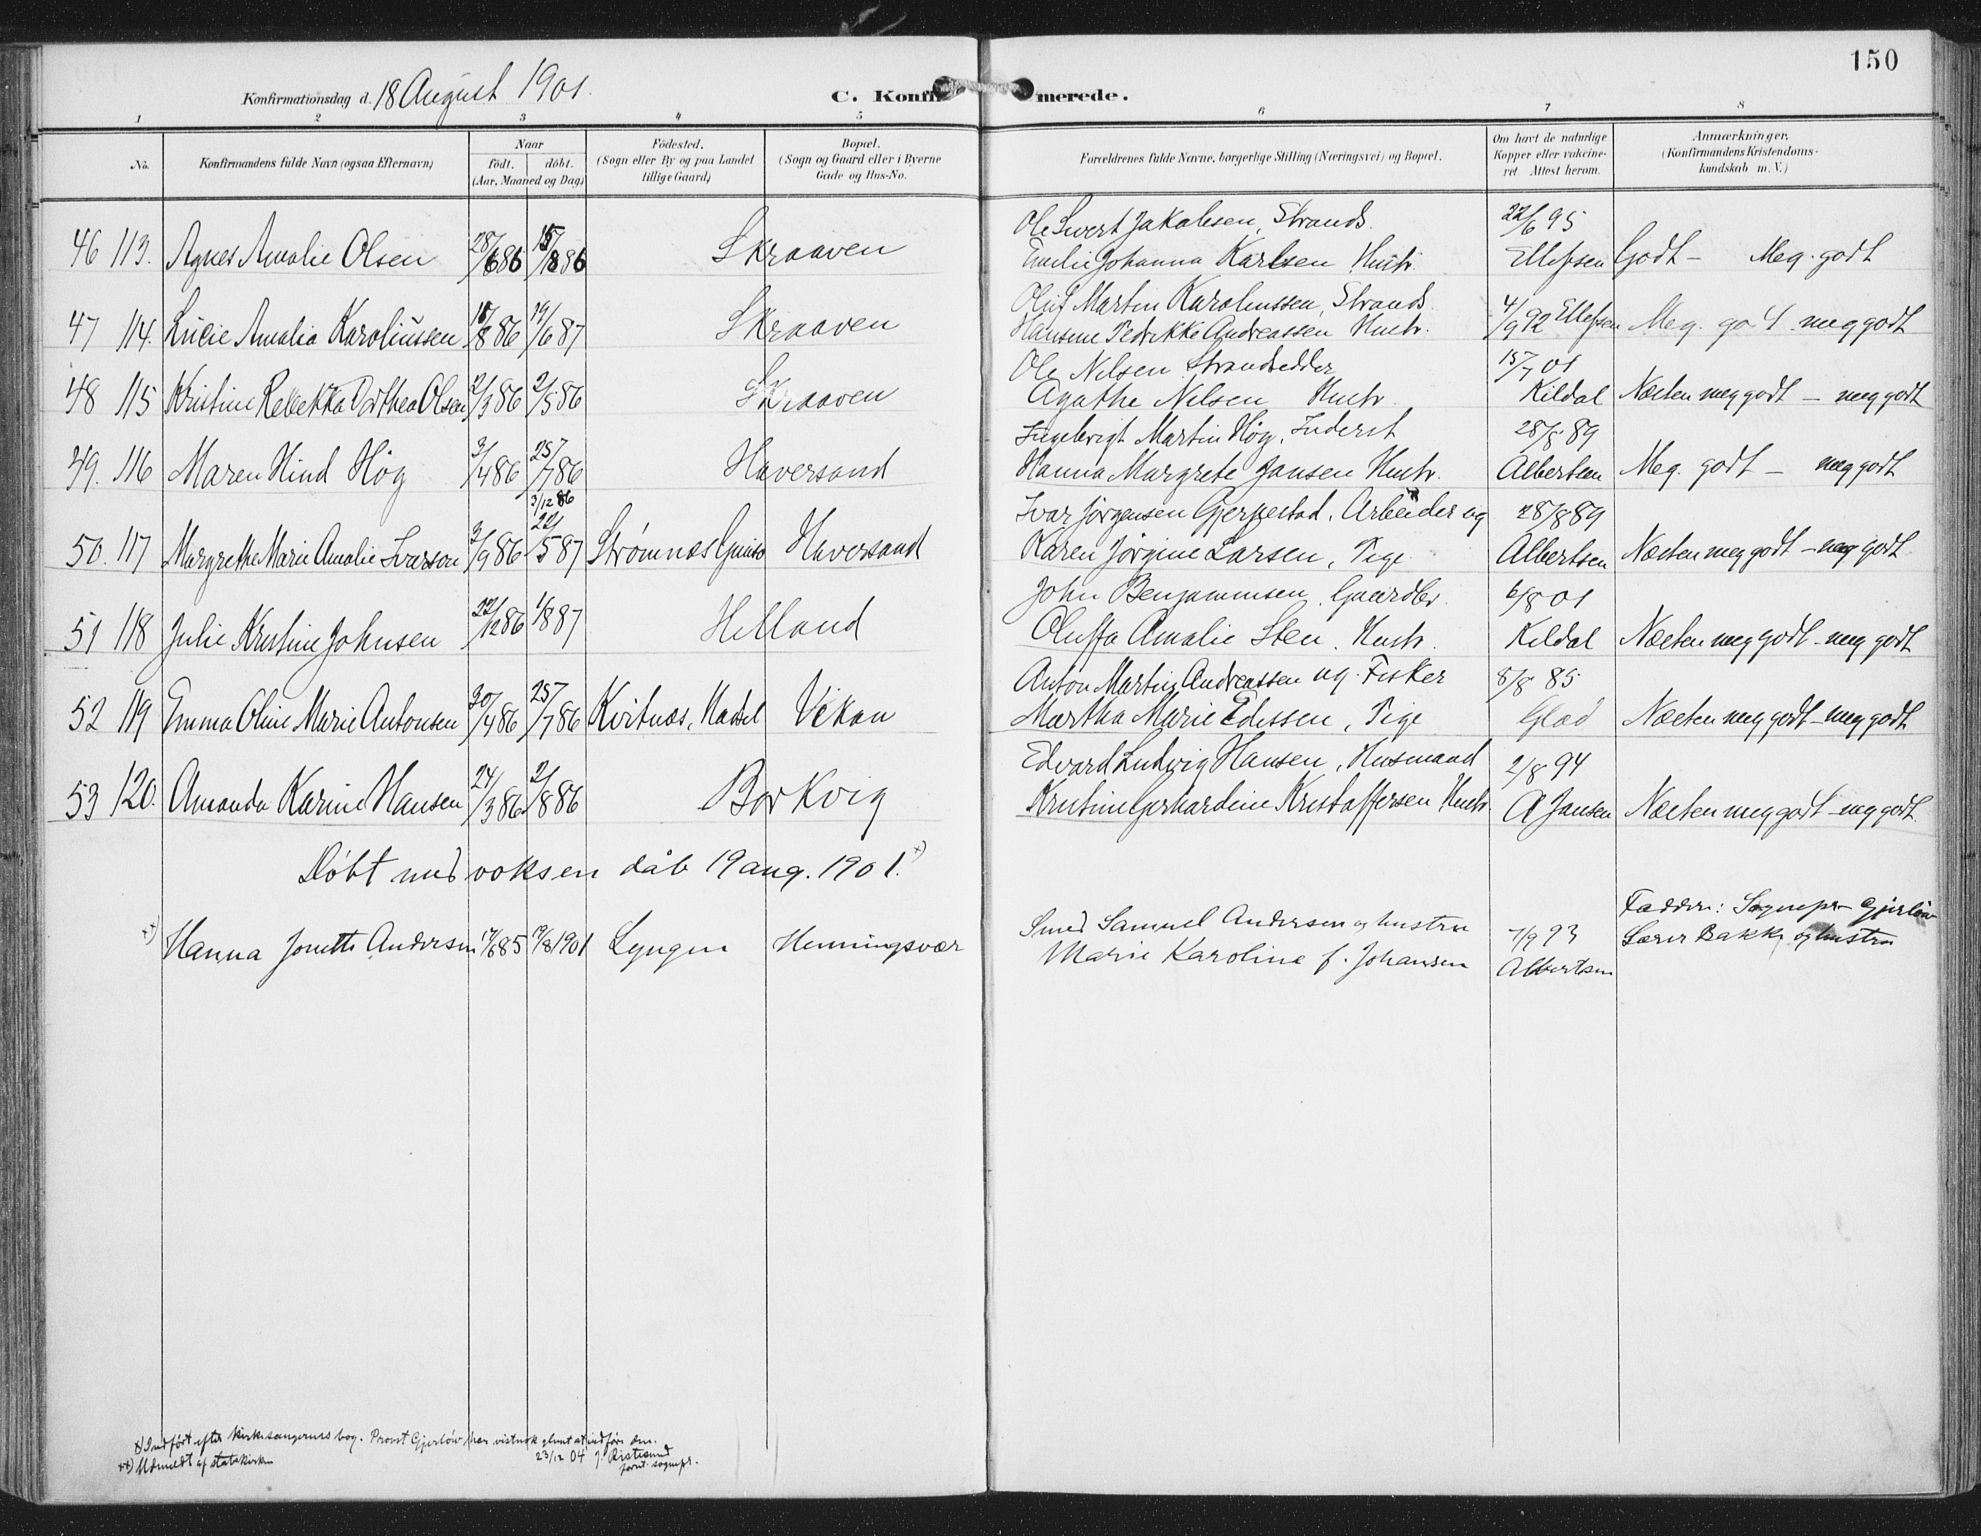 150
Konfirmationsdag d. 18 August 1901.
C. Konfir merede.
1 2 3 4 5 6 7 8
No. Konfirmandens fulde Navn (ogsaa Efternavn)
Naar
født. døbt.
(Aar, Maaned og Dag)
Fødested.
(Sogn eller By og paa Landet
tillige Gaard)
Bopæl.
(Sogn og Gaard eller i Byerne
Gade og Hus-No.
Forældrenes fulde Navne, borgerlige Stilling (Næringsvei) og Bopæl.
Om havt de naturlige
Kopper eller vakcine-
ret Attest herom.
Anmærkninger.
(Konfirmandens Kristendoms-
kundskab m. V.)
Ole Sivert Jakobsen, Strands. 22/6 95
46 113. Agnes Amalie Olsen 28/6 86 15/8 86 Skraaven Emelie Johanna Karlsen Hustr. Ellefsen Godt - Meg. godt
Oluf Martin Karoliussen, Strands. 4/9 92 Ellefsen
47 114. Lucie Amalia Karoliussen 18/8 86 19/6 87 Skraaven Hansine Pedrikke Andreassen Hustr. Meg. godt meg godt
Ole Nilsen Strandsedder 15/7 01
48 115 Kristine Rebekka Dorthea Olsen 12/3 86 2/5 86 Skraaven Agathe Nilsen Hustr. Kildal Næsten meg godt - meg godt
Ingebrigt Martin Høg, Inderst 28/8 89
49. 116 Maren Hind Høg 3/4 86 25/7 86 Haversand Hanna Margrete Jansen Hustr. Albertsen Meg. godt - meg godt
3/12 86
Ivar Jørgensen Gjerpestad, Arbeider og 28/8 89
50. 117 Margrethe Marie Amalie Ivarson 3/9 86 22/5 87 Strømnæs Haversand Karen Jørgine Larsen, Pige Albertsen Næsten meg godt - meg godt
John Benjaminsen, Gaardbr. 6/8 01
51 118 Julie Kristine Johnsen 22/12 86 1/8 87 Helland Oluffa Amalie Sten, Hustr. Kildal Næsten meg godt - meg godt
Anton Martin Andreassen ug. Fisker 8/8 85
52 119 Emma Oline Marie Antonsen 30/4 86 25/7 86 Kvitnæs, Hadsel Vikan Martha Marie Edissen, Pige Glad Næsten meg godt - meg godt
Edvard Ludvig Hansen, Husmand 2/8 94
53 120. Amanda Karine Hansen 24/3 86 2/8 86 Borkvig Kristine Gerhardine Kristoffersen Hustr A Jansen Næsten meg godt - meg godt.
Døbt med voksen dåb 19 aug. 1901. x)
Faddere: Sognepr Gjerløw
Smed Samuel Andersen og hustru 7/9 93 Lærer Bakke og hustru
xx) Hanna Jonette Andersen 17/6 85 19/8 1901 Lyngen Henningsvær Marie Karoline f. Johansen Albertsen
x) Indført efter kirkesangerens bog. Provst Gjerløw har vistnok glemt at indføre den.
23/12 04 J. Ristesund
xx) Udmeldt af statskirken
sognepr.